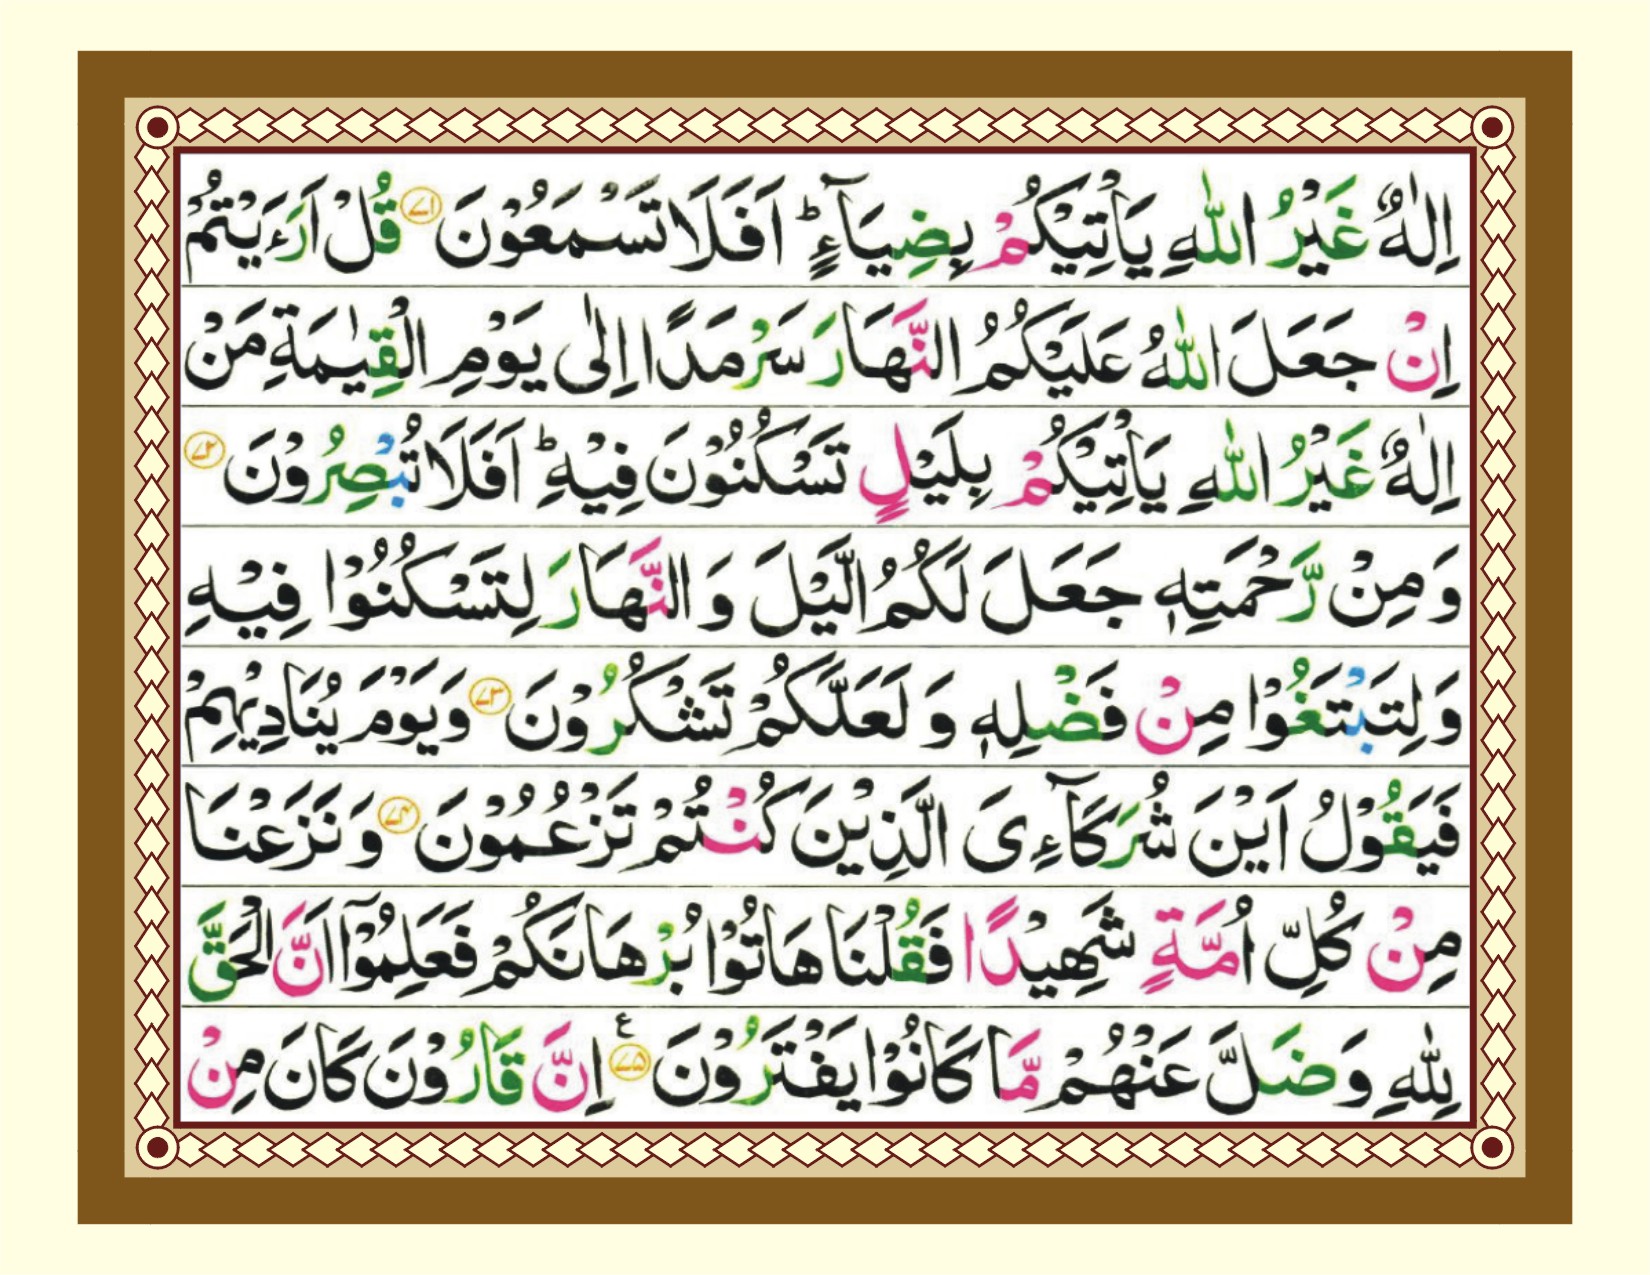 اِلٰهٌ غَيْرُ اللّٰهِ يَاْتِيْكُمْ بِضِيَآءٍ ؕ اَفَلَا تَسْمَعُوْنَ ﴿۷۱﴾ قُلْ اَرَءَيْتُمْ
اِنْ جَعَلَ اللّٰهُ عَلَيْكُمُ النَّهَارَ سَرْمَدًا اِلٰى يَوْمِ الْقِيٰمَةِ مَنْ
اِلٰهٌ غَيْرُ اللّٰهِ يَاْتِيْكُمْ بِلَيْلٍ تَسْكُنُوْنَ فِيْهِ ؕ اَفَلَا تُبْصِرُوْنَ ﴿۷۲﴾
وَ مِنْ رَّحْمَتِهٖ جَعَلَ لَكُمُ الَّيْلَ وَ النَّهَارَ لِتَسْكُنُوْا فِيْهِ
وَ لِتَبْتَغُوْا مِنْ فَضْلِهٖ وَ لَعَلَّكُمْ تَشْكُرُوْنَ ﴿۷۳﴾ وَ يَوْمَ يُنَادِيْهِمْ
فَيَقُوْلُ اَيْنَ شُرَكَآءِيَ الَّذِيْنَ كُنْتُمْ تَزْعُمُوْنَ ﴿۷۴﴾ وَ نَزَعْنَا
مِنْ كُلِّ اُمَّةٍ شَهِيْدًا فَقُلْنَا هَاتُوْا بُرْهَانَكُمْ فَعَلِمُوْۤا اَنَّ الْحَقَّ
لِلّٰهِ وَ ضَلَّ عَنْهُمْ مَّا كَانُوْا يَفْتَرُوْنَ ﴿۷۵﴾ ع اِنَّ قَارُوْنَ كَانَ مِنْ